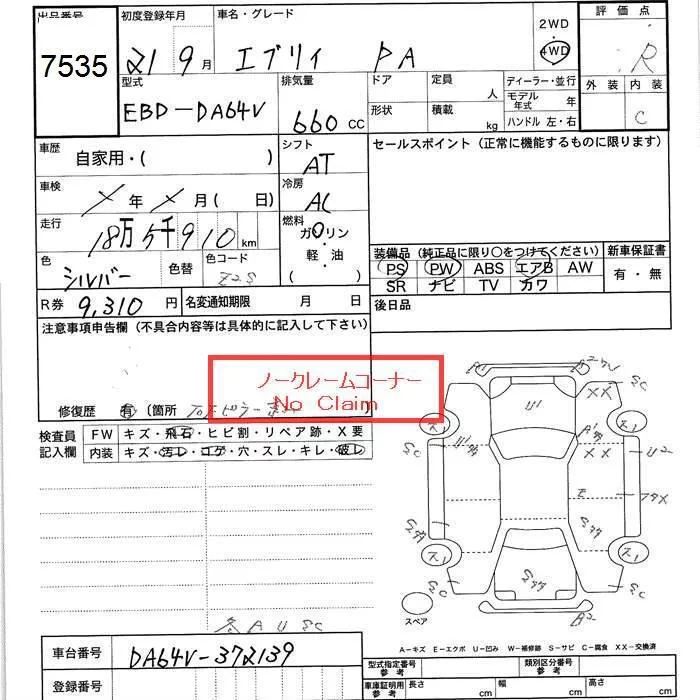 出品番号 初度登録年月 車名・グレード 2WD 評価点
7535 21 9月 エブリィ PA 4WD R
型式 排気量 ドア 定員 ディーラー・並行 外装 内装
人 モデル年式 年
EBD-DA64V 660 CC 形状 積載 kg ハンドル 左・右 C
車歴 シフト セールスポイント (正常に機能するものに限ります)
自家用・( ) AT
車検 冷房
年 月 ( 日) AC
走行 燃料
18万5千910km ガソリン
装備品 (純正品に限り○をつけてください) 新車保証書
色 色替 色コード 軽・油 PS PW ABS エアB AW 有・無
シルバー Z2S ( ) SR ナビ TV カワ
R券 9,310 円 名変通知期限 月 日 後日品
注意事項申告欄 (不具合内容等は具体的に記入して下さい)
ノークレームコーナー
No Claim
修復歴 有 〔箇所
検査員 FW キズ・飛石・ヒビ割・リペア跡・X要
記入欄 内装 キズ・汚レ・コゲ・穴・スレ・キレ・破レ
スペア
各AUSC
A-キズ E-エクボ U-凹み W-補修跡 S-サビ C-腐食 XX-交換済
車台番号 DA64V-372139
型式指定番号参考 類別区分番号参考
登録番号 車庫証明用参考 長さ cm 幅 cm 高さ cm